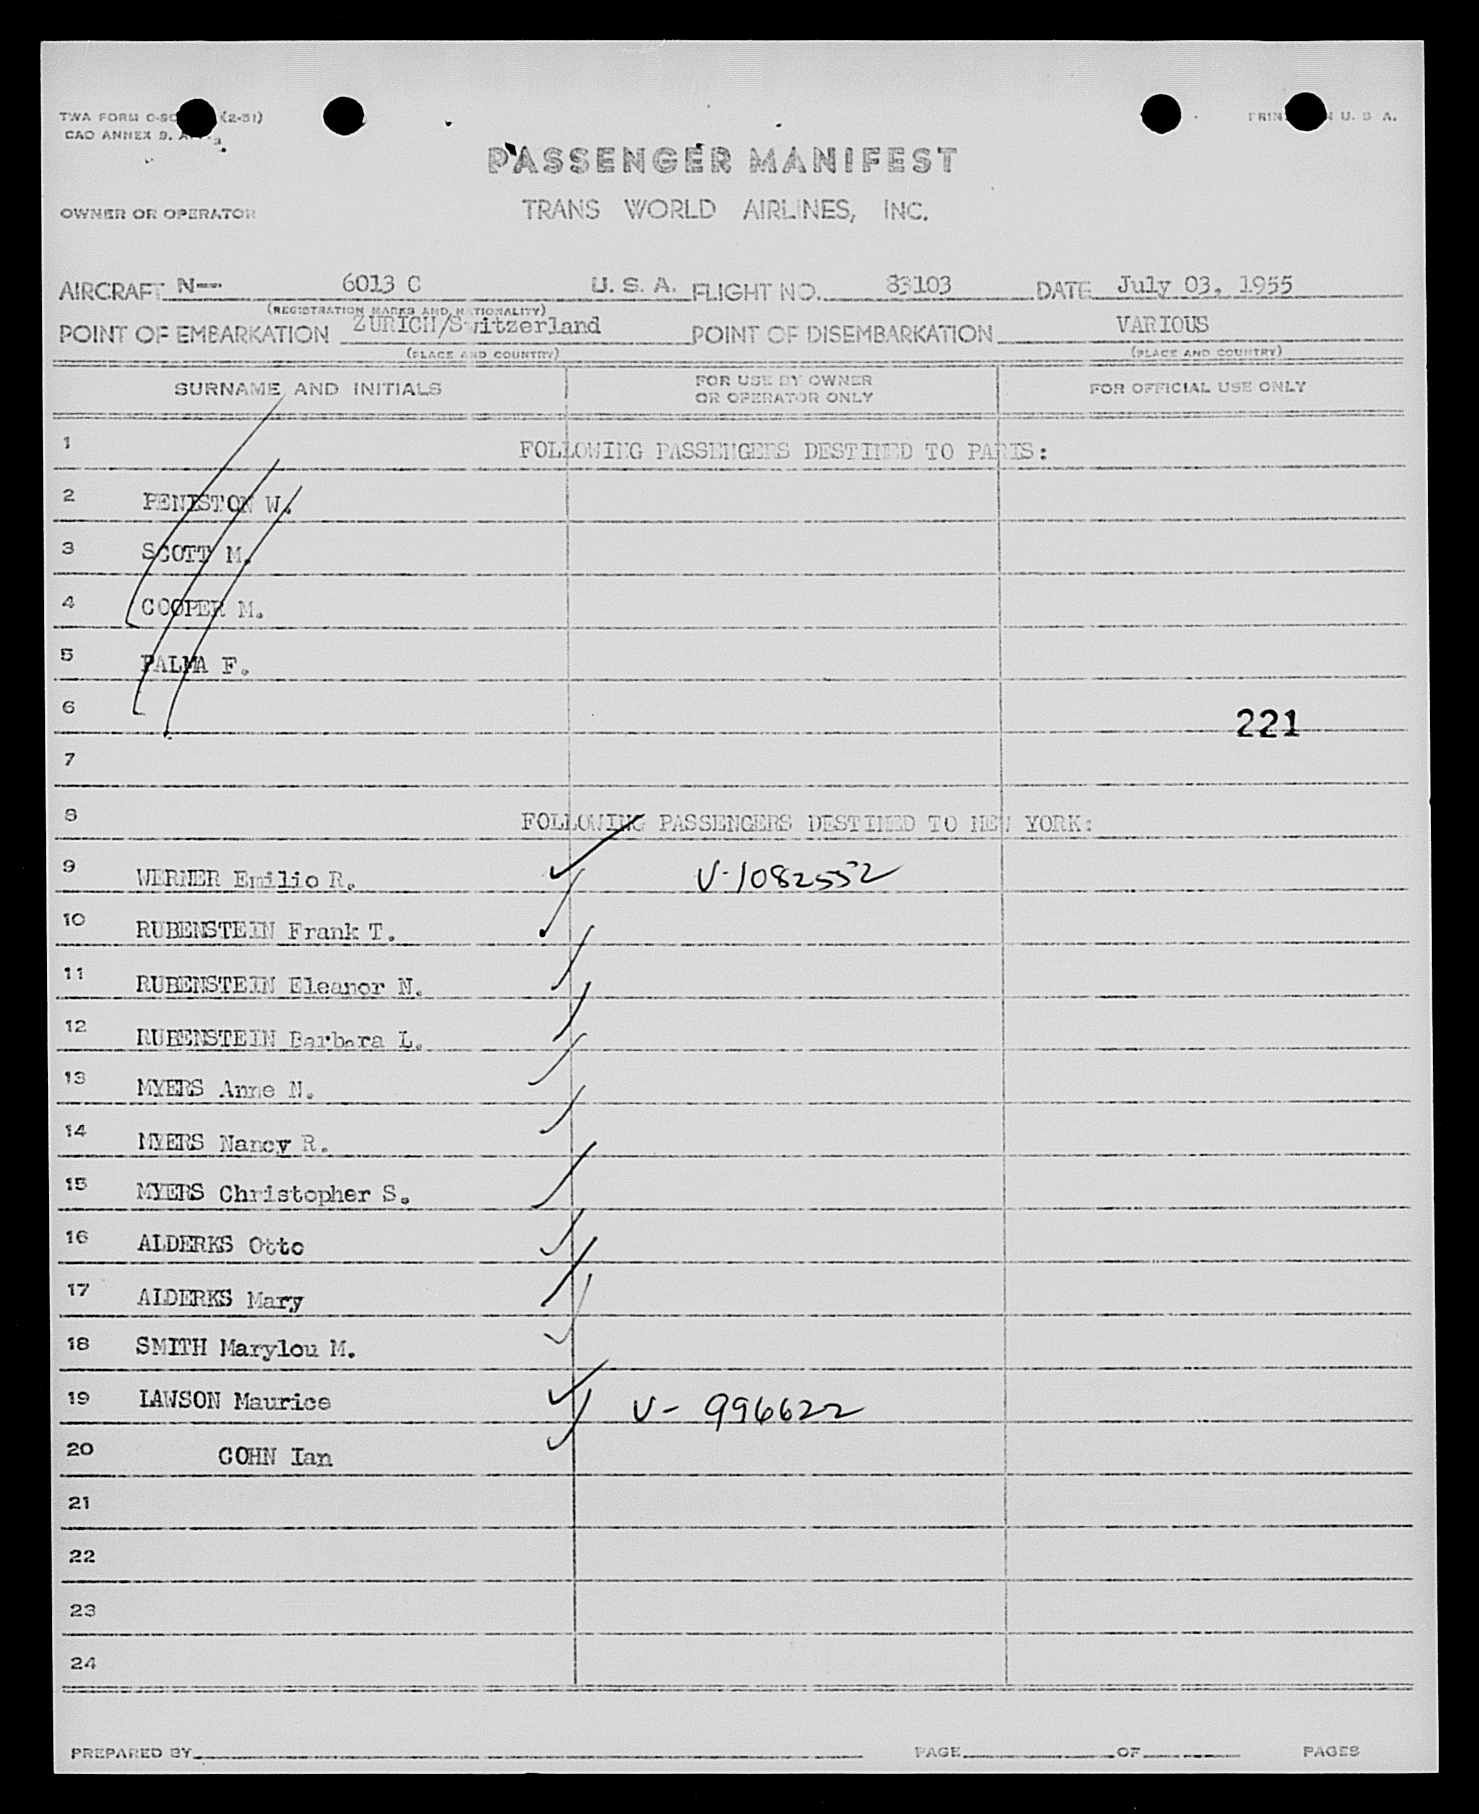 TWA FORM (2-51)
PRIN U. S. A.
CAO ANNEX 9.
PASSENGER MANIFEST
OWNER OR OPERATOR TRANS WORLD AIRLINES, INC.
AIRCRAFT N-- 6013 C U. S. A. FLIGHT NO. 83103 DATE July 03. 1955
(REGISTRATION MARKS AND NATIONALITY)
POINT OF EMBARKATION ZURICH/Switzerland POINT OF DISEMBARKATION VARIOUS
(PLACE AND COUNTRY) (PLACE AND COUNTRY)
SURNAME AND INITIALS FOR USE BY OWNER OR OPERATOR ONLY FOR OFFICIAL USE ONLY
1 FOLLOWING PASSENGERS DESTINED TO PARIS:
2 PENISTON W.
3 SCOTT M.
4 COOPER M.
5 PALMA F.
6 221
7
8 FOLLOWING PASSENGERS DESTINED TO NEW YORK:
9 WERNER Emilio R. V-1082552
10 RUBENSTEIN Frank T.
11 RUBENSTEIN Eleanor N.
12 RUBENSTEIN Barbara L.
13 MYERS Anne N.
14 MYERS Nancy R.
15 MYERS Christopher S.
16 ALDERKS Otto
17 ALDERKS Mary
18 SMITH Marylou M.
19 LAWSON Maurice V- 996622
20 COHN Ian
21
22
23
24
PREPARED BY PAGE OF PAGES